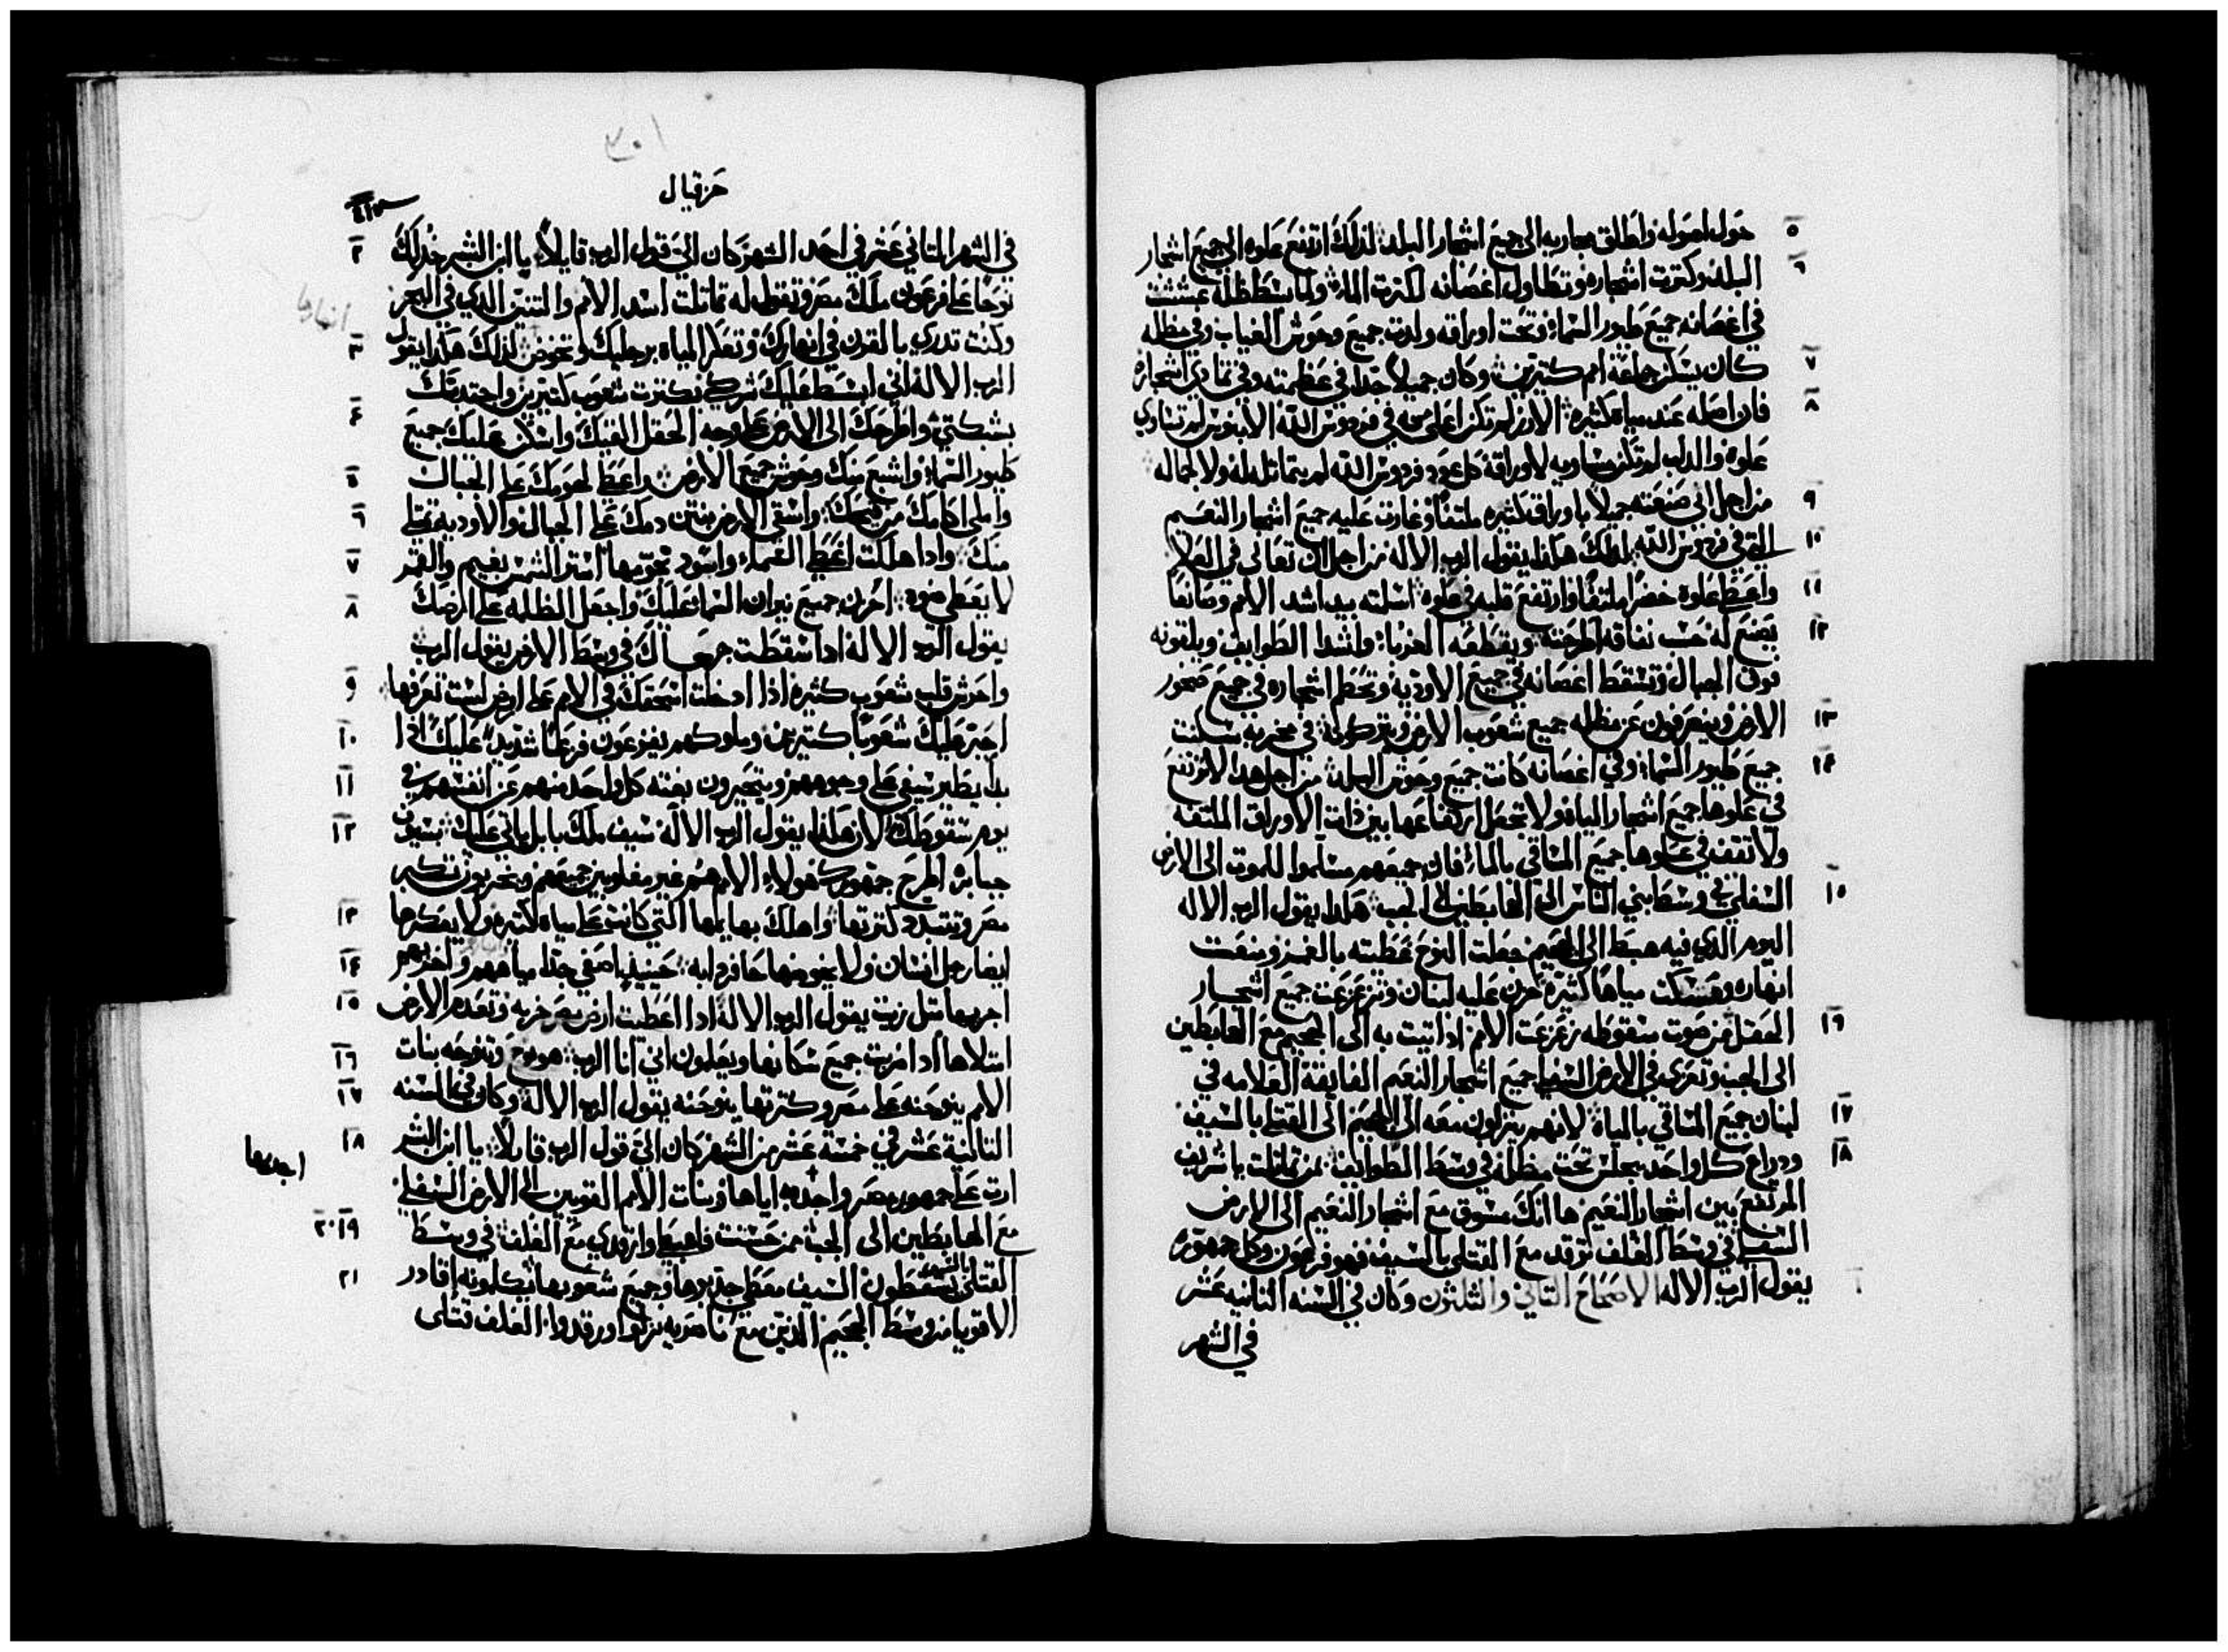 حول اصوله واطلق مجاريه الى جميع اشجار البلد لذلك ارتفع علوه الى جميع اشجار
٥
البلد وكترت اشجاره وتطاول اغصانه لكترت الماء ولما بسط ظله عششت
٦
في اغصانه جميع طيور السماء وتحت اوراقه ولدت جميع وحوش الغياب وفي مظله
كان يسكن جماعة امم كتيرين وكان جميلاً جدا في عظمته وفي اشجاره
٧
فان اصله عند مياه كثيره الارز لم تكن اعلى منه في فردوس الله الابنوس لم تساوي
٨
علوه والدلب لم تكن مساويه لاوراقه كل عود فردوس الله لم يتماثل له ولا لجماله
من اجل اني صنعته جميلاً باوراق كثيره ملتفاً وغارت عليه جميع اشجار النعيم
٩
التي في فردوس الله لذلك هكذا يقول الرب الاله من اجل ان تعالى في العلا
١٠
واعطى علوه خضراً ملتفاً وارتفع قلبه في علوه اسلته بيد اشد الامم وصانعاً
١١
يصنع له حسب نفاقه اطرحته ويقطعه الغربا واشد الطوايف ويلقونه
١٢
فوق الجبال وتسقط اغصانه في جميع الاوديه وتحطم اشجاره في جميع صخور
الارض وينصرفون عن مظله جميع شعوب الارض ويتركونه في مخربه سكنت
١٣
جميع طيور السماء وفي اغصانه كانت جميع وحوش البلد من اجل هذا لا ترتفع
١٤
في علوها جميع اشجار المياه ولا تجعل ارتفاعها بين ذات الاوراق الملتفه
ولا تقف في علوها جميع المساقي بالماء فان جميعهم سلموا للموت الى الارض
السفلى في وسط بني الناس الى الهابطين الى الجب هكذا يقول الرب الاله
١٥
اليوم الذي فيه هبط الى الجحيم جعلت النوح غطيته بالغمر ومنعت
انهاره ومسكت مياهاً كتيرة حزن عليه لبنان وتزعزعت جميع اشجار
الحقل من صوت سقوطه زعزعت الامم اذ اتيت به الى الجحيم مع الهابطين
١٦
الى الجب وتعزى في الارض السفلى جميع اشجار النعيم الفايقة العلامه في
لبنان جميع المساقي بالمياه لانهم ينزلون معه الى الجحيم الى القتلى بالسيف
١٧
ودراع كل واحد يجلس تحت مظله في وسط الطوايف بمن تماثلت يا شريف
١٨
المرتفع بين اشجار النعيم ها انك مسوق مع اشجار النعيم الى الارض
السفلى في وسط الغلف ترقد مع القتلى بالسيف فهو فرعون وكل جمهوره
يقول الرب الاله الاصحاح التاني والثلثون وكان في السنه الثانيه عشر
في الشهر
٣٠١
حزقيال
في الشهر التاني عشر في احد الشهر كان اليّ قول الرب قايلاً يا ابن البشر خد لك
٢
نوحاً على فرعون ملك مصر وتقول له تماتلت اسد الامم والتنين الدي في البحر
وكنت تدري بالقرن في انهارك وتعكر المياه برجليك وتخوض لذلك هكذا يقول
٣
الرب الاله اني ابسط عليك شركي بكترت شعوب كتيرين واجتدبك
بشبكتي واطرحك الى الارض على وجه الحقل القيك واسكن عليك جميع
٤
طيور السماء واشبع منك وحوش جميع الارض واعطي لحومك على الجبال
٥
واملي اكامك من قيحك واسقي الارض من نتن دمك على الجبال والاوديه تمتلي
٦
منك واذا هلكت اغطي السماء واسود نجومها استر الشمس بغيم والقمر
٧
لا يعطي ضوه احزن جميع نيران السماء عليك واجعل الظلمه على ارضك
٨
يقول الرب الاله اذا سقطت جرحاك في وسط الارض يقول الرب
واحرش قلب شعوب كثيره اذا ادخلت انسحاقك في الامم على ارض لست تعرفها
٩
احير عليك شعوباً كتيرين وملوكهم يفزعون فزعاً شديداً عليك اذا
١٠
بدا يطير سيفي على وجوههم ويتحيرون بغته كل واحد منهم عن انفسهم في
١١
يوم سقوطك لان هكذا يقول الرب الاله سيف ملك بابل ياتي عليك بسيوف
١٢
جبابره اطرح جمهورك هولاء الامم هم غير مغلوبين جميعهم ويخربون تكبر
مصر وتتبدد كترتها واهلك بهايمها التي كانت على مياه كتيره ولا يعكرها
١٣
ايضا رجل انسان ولا يخوضها حافر دابه حينيذ اصفي جدا مياههم و
١٤
اجريها متل زيت يقول الرب الاله اذا اعطيت ارض مصر خربه وتعدم الارض
١٥
امتلاها اذا ضربت جميع سكانها ويعلمون اني انا الرب هو نوح وتنوحه بنات
١٦
الامم ينوحنه على مصر وكترتها ينوحنه يقول الرب الاله وكان في السنه
١٧
الثانية عشر في خمسة عشر من الشهر كان اليّ قول الرب قايلاً يا ابن البشر
١٨
ارت على جمهور مصر واجدبه اياها وبنات الامم القويين الى الارض السفلى
اجدبها
مع الهابطين الى الجب ممن حسنت فاهبطي وارقدي مع الغلف في وسط
١٩ ٢٠
القتلى بالسيف يسقطون السيف معطي جذبوها وجميع شعوبها يكلمونه اقادر
٢١
الاقويا من وسط الجحيم الذين مع ناصريه نزلوا ورقدوا الغلف قتلى